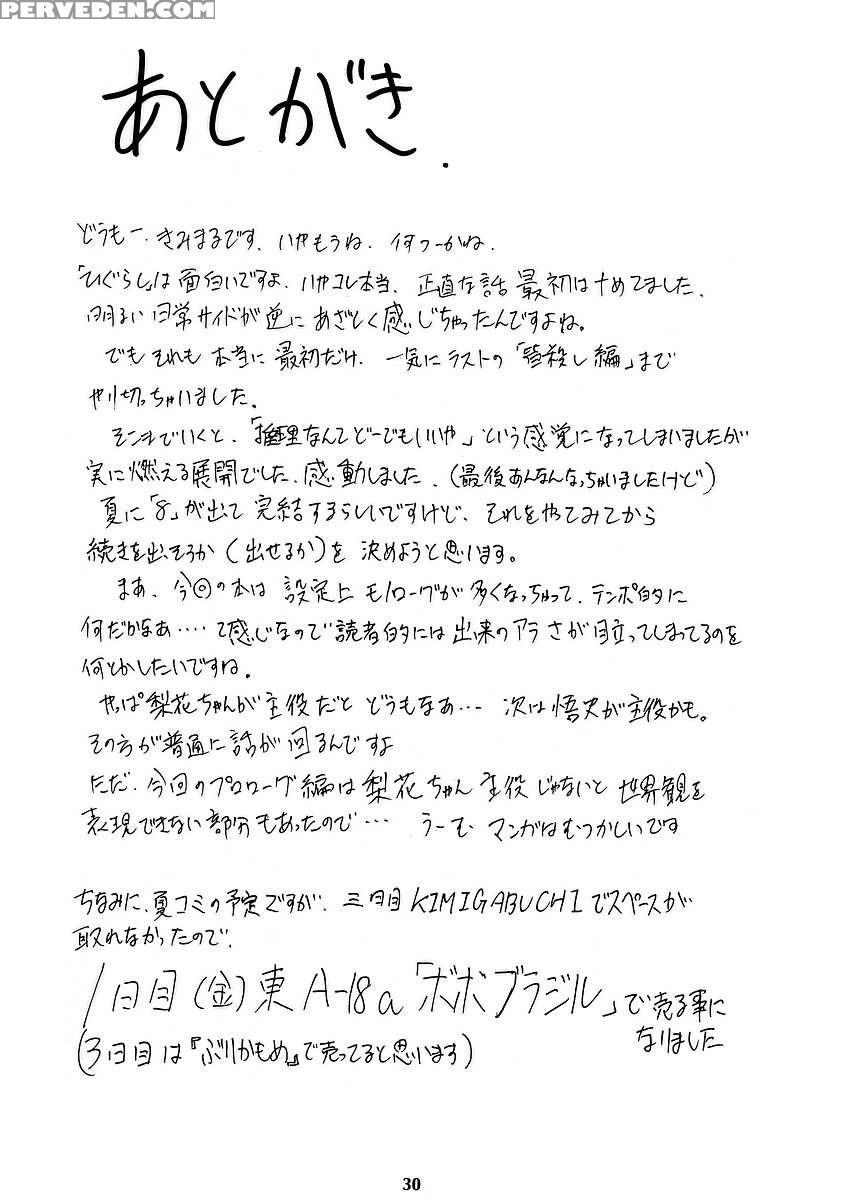 PERVEDEN.COM
あとがき.
どうもー、きみまるです、いやもうね、何つーかね、
「ひぐらし」は面白いですよ、いやコレ本当、正直な話 最初はナめてました、
明るい日常サイドが逆にあざとく感じちゃったんですよね。
でもそれも本当に最初だけ、一気にラストの「皆殺し編」まで
やり切っちゃいました。
そこまでいくと、「推理なんてどーでもいいや」という感覚になってしまいましたが
実に燃える展開でした、感動しました、(最後あんなんなっちゃいましたけど)
夏に「8」が出て完結するらしいですけど、それをやってみてから
続きを出そうか(出せるか)を決めようと思います。
まあ、今回の本は設定上モノローグが多くなっちゃって、テンポ的に
何だかなあ‥‥って感じなので読者的には出来のアラさが目立ってしまってるのを
何とかしたいですね。
やっぱ梨花ちゃんが主役だとどうもなあ… 次は悟史が主役かも。
その方が普通に話が回るんですよ
ただ、今回のプロローグ編は梨花ちゃん主役じゃないと世界観を
表現できない部分もあったので… うーむ マンガはむつかしいです
ちなみに、夏コミの予定ですが、三日目KIMIGABUCHIでスペースが
取れなかったので、
1日目(金)東A-18a「ボボブラジル」で売る事に
なりました
(3日目は『ぶりかもめ』で売ってると思います)
30